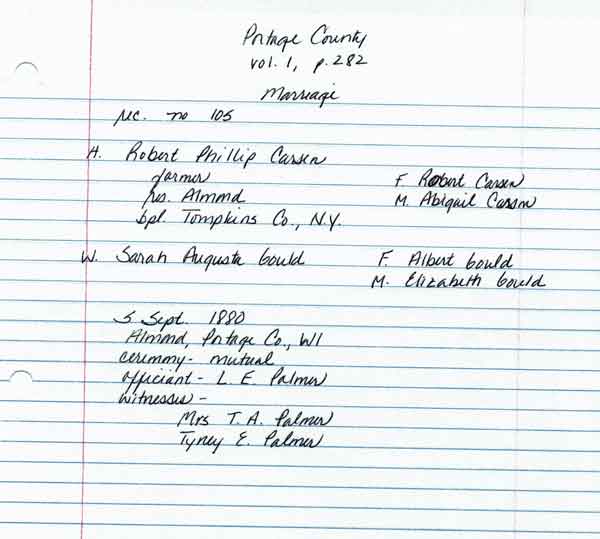 Portage County
vol. 1, p. 282
Marriage
rec. no 105
H. Robert Phillip Carsen
farmer F. Robert Carsen
res. Almond M. Abigail Carson
bpl. Tompkins Co., N.Y.
W. Sarah Augusta Gould F. Albert Gould
M. Elizabeth Gould
5 Sept. 1880
Almond, Portage Co., WI
ceremony - mutual
officiant - L. E. Palmer
witnesses -
Mrs T. A. Palmer
Tyney E. Palmer